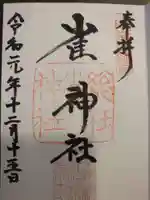 奉拝
雀神社
令和元年十二月十五日